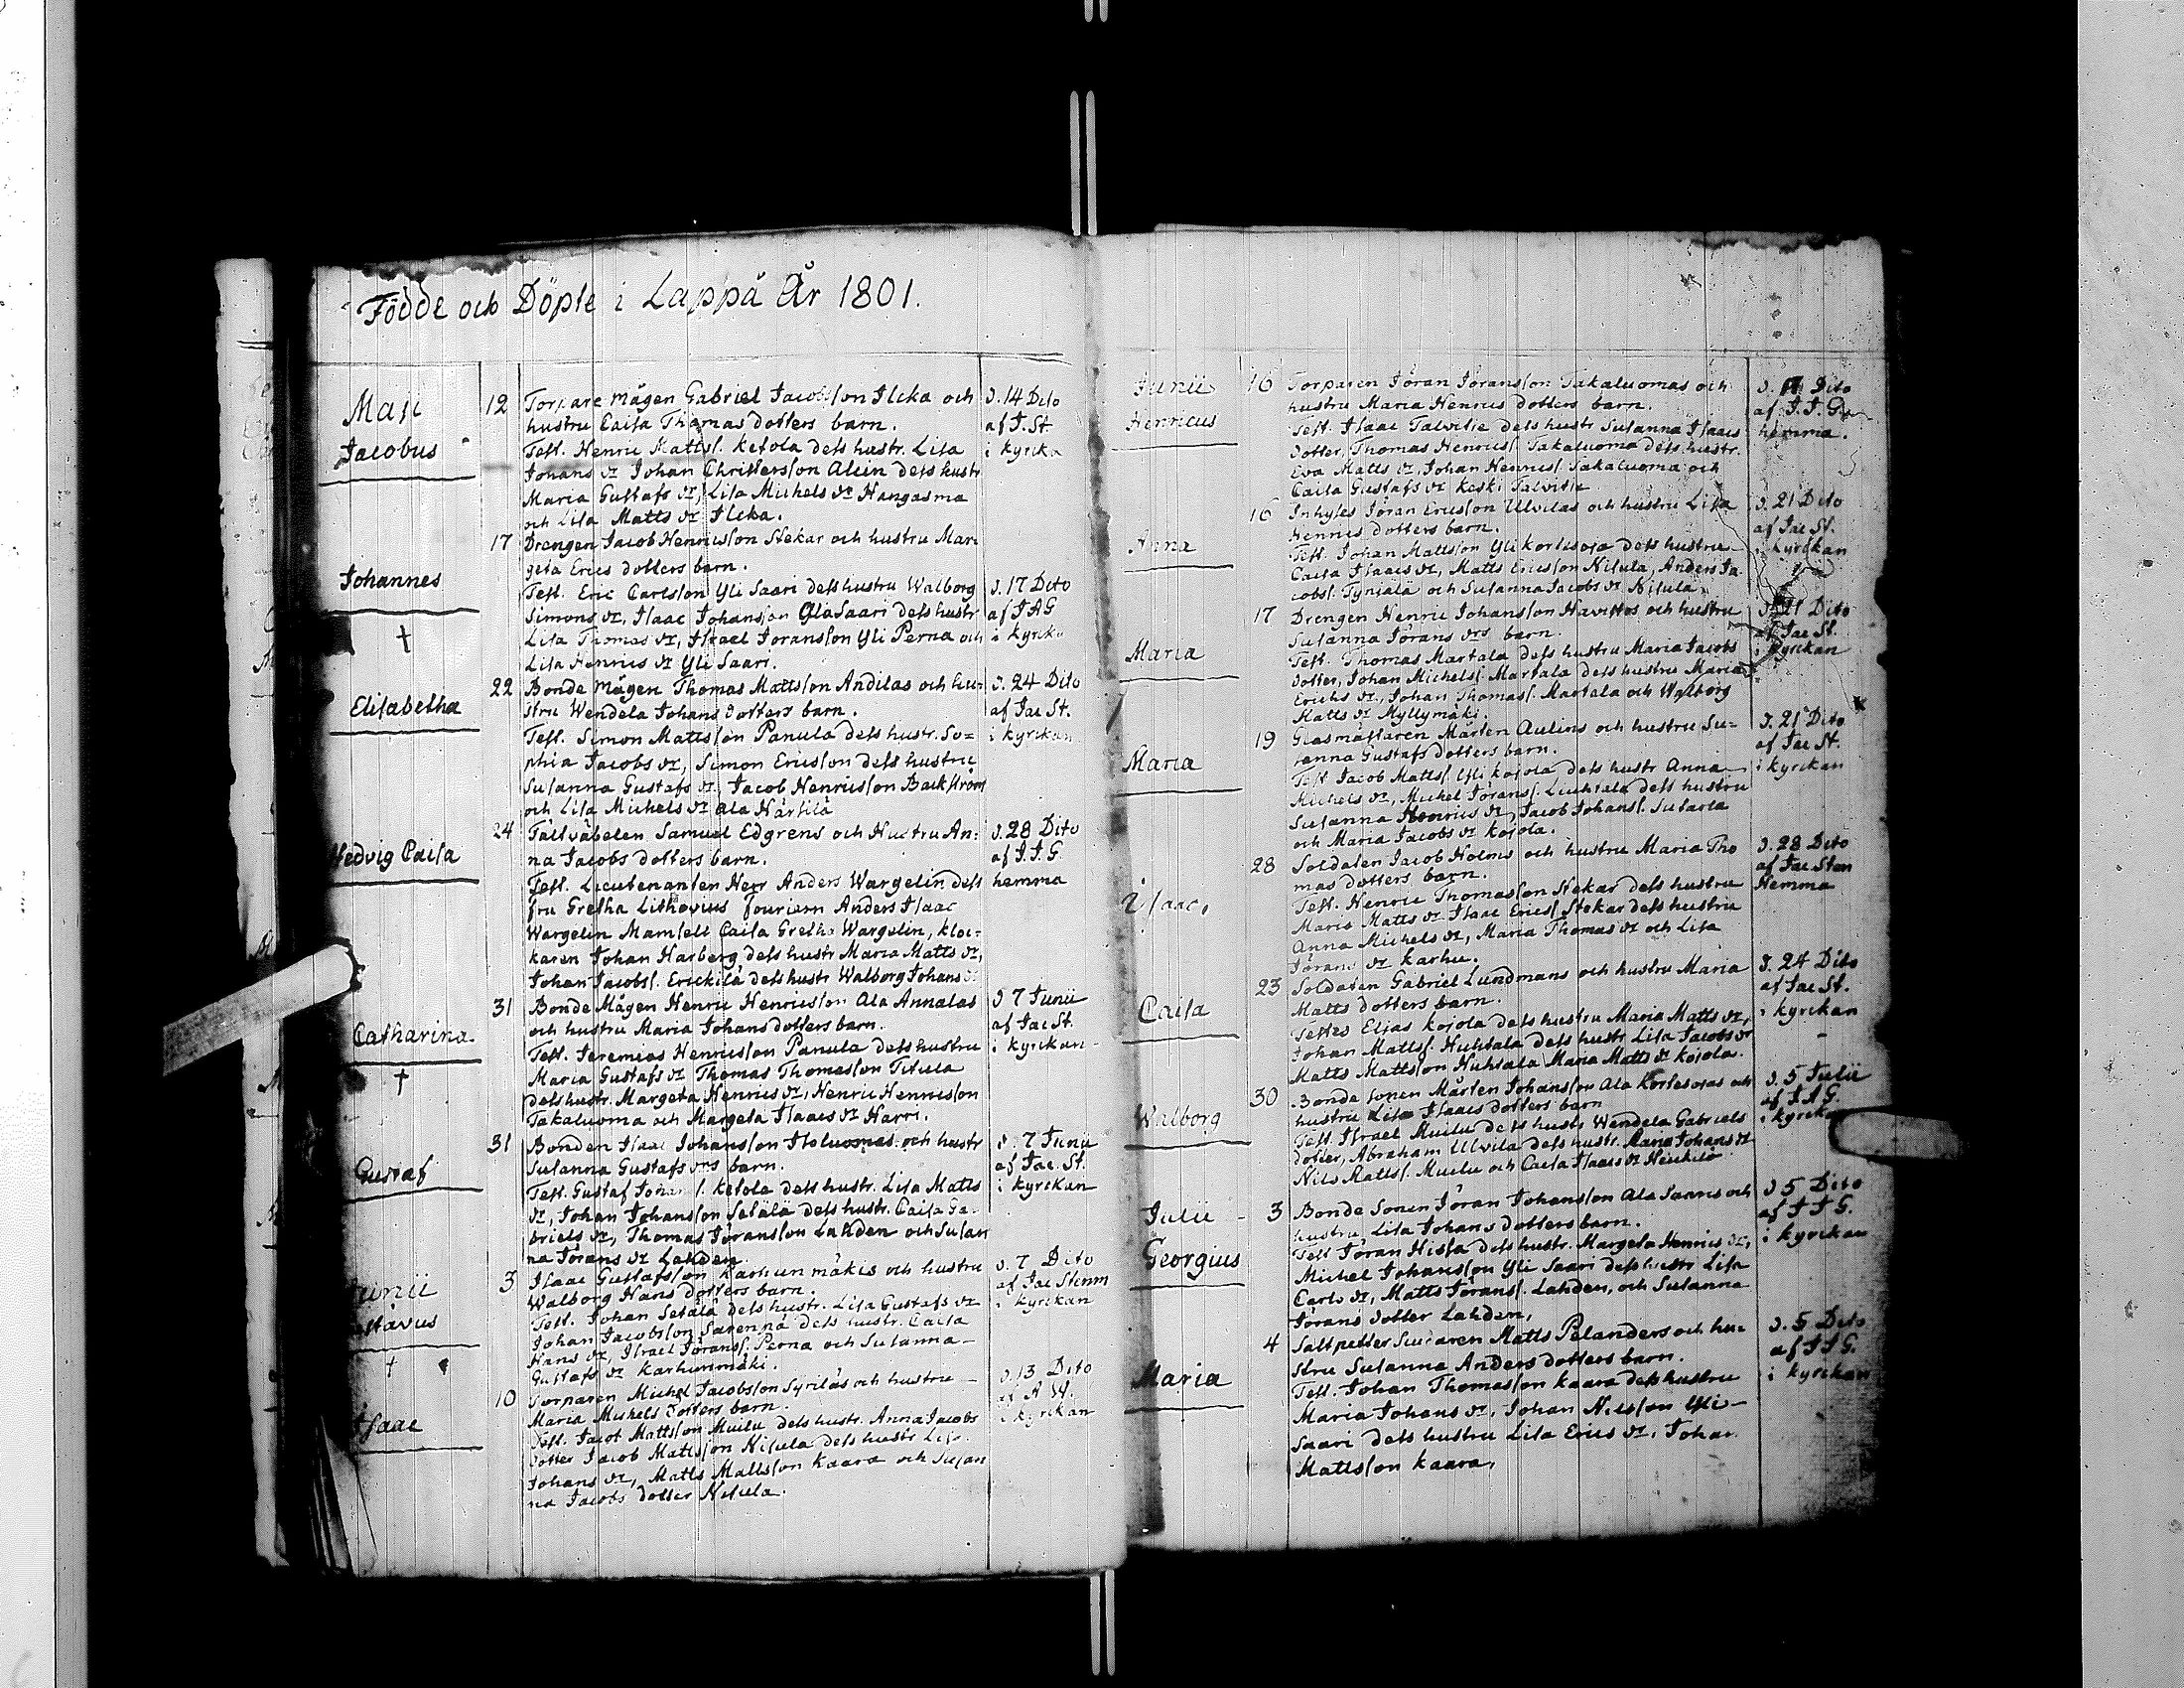 Födde och Döpte i Lappå År 1801.
Maji 12 Torpare mågen Gabriel Jacobsson Ilcka och d. 14 Dito
Jacobus hustru Caisa Thomas dotters barn. af J. St.
Test. Henric Mattss. Ketola dess hustr. Lisa i kyrka
Johans dr Johan Christersson Alein dess hustr
Maria Gustafs dr, Lisa Michels dr Hangasma
och Lisa Matts dr Ilcka.
17 Drengen Jacob Henricsson Stekar och hustru Mar-
geta Erics dotters barn.
Johannes Test. Eric Carlsson Yli Saari dess hustru Walborg d. 17 Dito
Simons dr, Isaac Johansson Ala Saari dess hustr af J A G
† Lisa Thomas dr, Israel Joransson Yli Perna och i kyrka
Lisa Henrics dr Yli Saari.
22 Bonde mågen Thomas Mattsson Andilas och hu- d. 24 Dito
Elisabetha stru Wendela Johans dotters barn. af Jac St.
Test. Simon Mattsson Panula dess hustr. So= i kyrkan
phia Jacobs dr, Simon Ericsson dess hustru
Susanna Gustafs dr, Jacob Henricsson Backström
och Lisa Michels dr Ala Härsilä
24 Fältväbelen Samuel Edgrens och Hustru An: d. 28 Dito
Hedvig Caisa na Jacobs dotters barn. af J. J. G
Test. Lieutenanten Herr Anders Wargelin dess hemma
fru Gretha Lithovius fouriern Anders Isaac
Wargelin Mamsell Caisa Gretha Wargelin, kloc-
karen Johan Harberg dess hustr Maria Matts dr,
Johan Jacobss. Erickilä dess hustr Walborg Johans d:
31 Bonde Mågen Henric Henricsson Ala Annalas d 7 Junii
Catharina och hustru Maria Johans dotters barn. af Jac St.
Test. Jeremias Henricsson Panula dess hustru i kyrkan
† Maria Gustafs dr Thomas Thomasson Titula
dess hustr. Margeta Henrics dr, Henric Henricsson
Takaluoma och Margeta Isaacs dr Harri.
31 Bonden Isaac Johansson Iloluomas och hustr d. 7 Junii
Gustaf Susanna Gustafs drs barn. af Jac. St.
Test. Gustaf Johans s. Ketola dess hustr. Lisa Matts i kyrkan
dr, Johan Johansson Setälä dess hustr. Caisa Ga-
briels dr, Thomas Joransson Lahden och Susan
na Jörans dr Lahden.
Junii 3 Isaac Gustafsson Karhun mäkis och hustru d. 7 Dito
Walborg Hans dotters barn. af Jac Stenm
Test. Johan Setälä dess hustr. Lisa Gustafs dr i kyrkan
Johan Jacobsson Sarenpä dess hustr. Caisa
† Hans dr, Israel Jöranss. Perna och Susanna
Gustafs dr Karhunmäki.
10 Torparen Michel Jacobsson Syriläs och hustru d. 13 Dito
Isaac Maria Michels dotters barn. af A W.
Test. Jacob Mattsson Muilu dess hustr. Anna Jacobs i kyrkan
dotter Jacob Mattsson Nisula dess hustr Lisa
Johans dr, Matts Mattsson Kaara och Susan
na Jacobs dotter Nisula.
Junii 16 Torparen Jöran Joransson Takaluomas och d. Dito
Henricus hustru Maria Henrics dotters barn. af J. J. G
Test. Isaac Talvitie dess hustr Susanna Isaacs hemma.
dotter, Thomas Henricss. Takaluoma dess hustr.
Eva Matts dr, Johan Henricss. Takaluoma och
Caisa Gustafs dr Keski Talvitie
16 Inhyses Jöran Ericsson Ulvilas och hustru Lisa d. 21 Dito
Henrics dotters barn. af Jac St.
Anna Test. Johan Mattsson Yli Kortesoja dess hustru i kyrkan
Caisa Isaacs dr, Matts Ericsson Nisula, Anders Ja-
cobss. Tyniälä och Susanna Jacobs dr Nisula
17 Drengen Henric Johansson Havistos och hustru d. 21 Dito
Susanna Jörans drs barn. af Jac St.
Maria Test. Thomas Martala dess hustru Maria Jacobs i kyrkan
dotter, Johan Michelss. Martala dess hustru Maria
Erichs dr, Johan Thomass. Martala och Walborg
Matts dr Myllymäki.
19 Glasmästaren Mårten Aulins och hustru Su= d. 21 Dito
sanna Gustafs dotters barn. af Jac St.
Maria Test Jacob Mattss. Yli Kojola dess hustr Anna i kyrkan
Michels dr, Michel Jöranss. Luhtala dess hustru
Susanna Henrics dr, Jacob Johanss. Susarla
och Maria Jacobs dr Kojola.
28 Soldaten Jacob Holms och hustru Maria Tho d. 28 Dito
mas dotters barn. af Jac Sten
Isaac, Test. Henric Thomasson Stekar dess hustru Hemma
Maria Matts dr Isaac Ericss Stekar dess hustru
Anna Michels dr, Maria Thomas dr och Lisa
Jörans dr Karhu.
23 Soldaten Gabriel Lundmans och hustru Maria d. 24 Dito
Caisa Matts dotters barn. af Jac St.
Testes Elias Kojola dess hustru Maria Matts dr, i kyrkan
Johan Mattss. Huhtala dess hustr Lisa Jacobs dr
Matts Mattsson Huhtala Maria Matts dr Kojola.
30 Bonde sonen Mårten Johansson Ala Kortesojas och d. 5 Julii
Walborg hustru Lisa Isaacs dotters barn af J A G.
Test. Israel Muilu dess hustr Wendela Gabriels i kyrkan
dotter, Abraham Ulvila dess hustr. Maria Johans dr
Nils Mattss. Muilu och Caisa Isaacs dr Heickilä
Julii 3 Bonde Sonen Jöran Johansson Ala Saaris och d 5 Dito
Georgius hustru Lisa Johans dotters barn. af J J G.
Test Jöran Hissa dess hustr. Margeta Henrics dr, i kyrkan
Michel Johansson Yli Saari dess hustr Lisa
Carls dr, Matts Jöranss. Lahden, och Susanna
Jörans dotter Lahden,
4 Saltpetter Siudaren Matts Pelanders och hu= d. 5 Dito
Maria stru Susanna Anders dotters barn. af J J G.
Test. Johan Thomasson Kaara dess hustru i kyrkan
Maria Johans dr, Johan Nilsson Yli-
Saari dess hustru Lisa Erics dr, Johan
Mattsson Kaara,